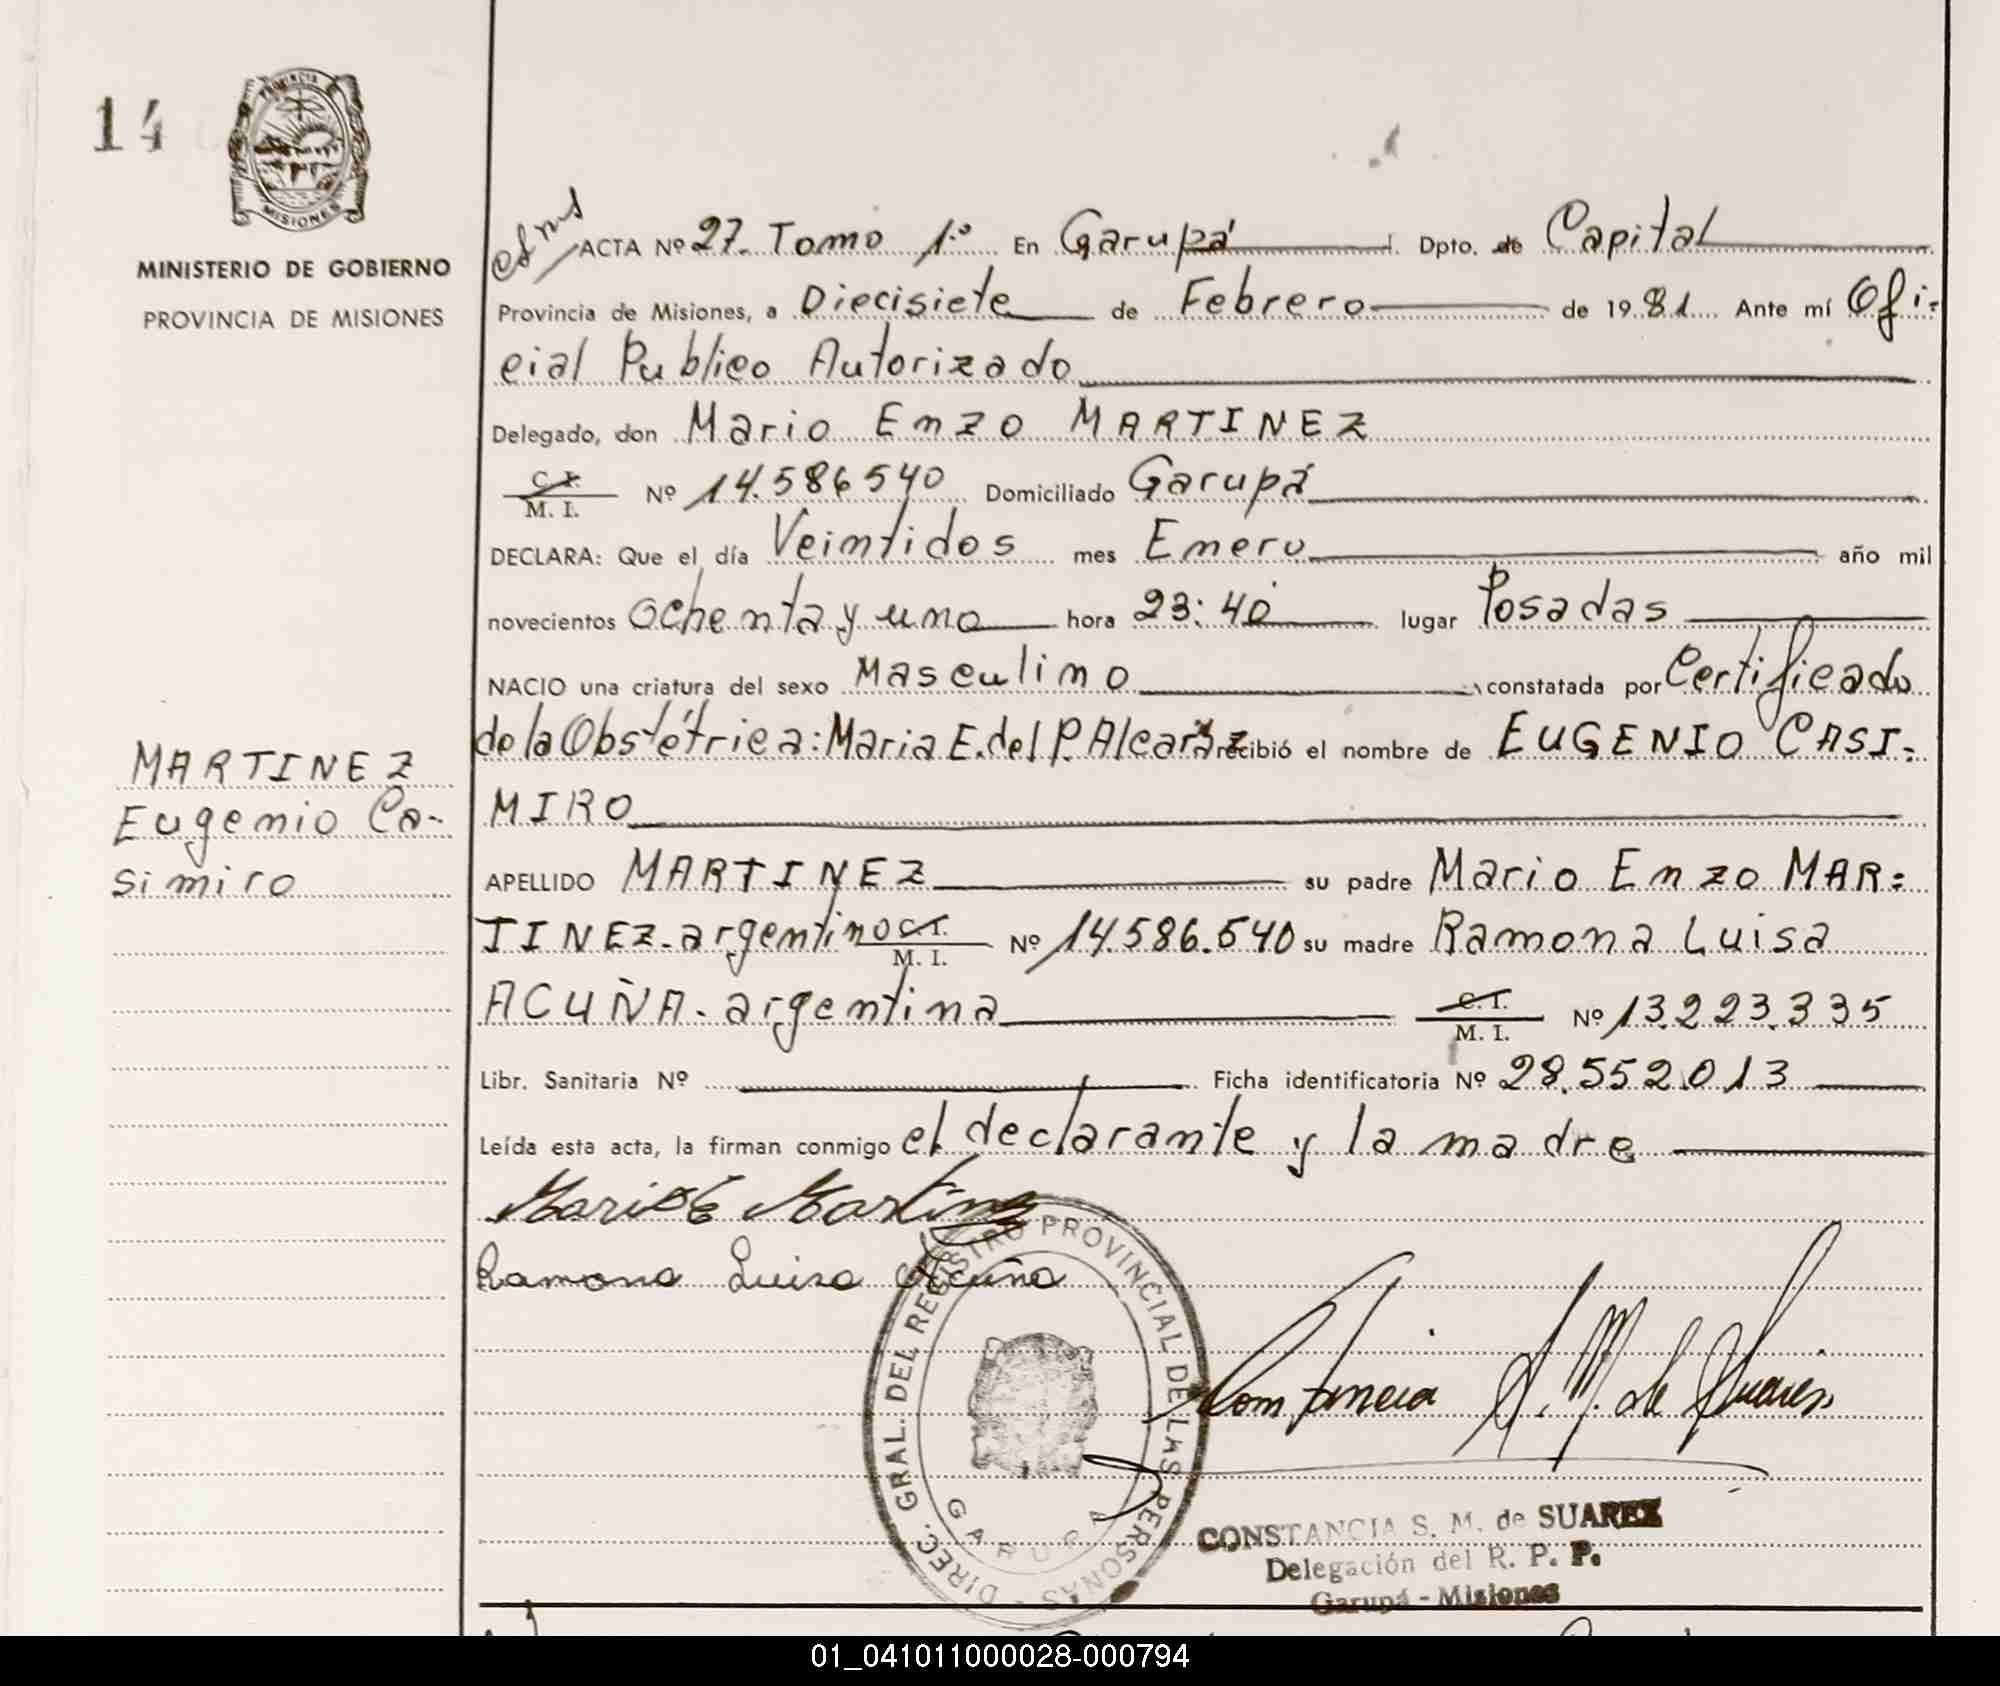 14
PROVINCIA
MISIONES
MINISTERIO DE GOBIERNO
PROVINCIA DE MISIONES
MARTINEZ
Eugenio Ca-
simiro
ACTA Nº 27. Tomo 1.º En Garupá Dpto. de Capital
Provincia de Misiones, a Diecisiete de Febrero de 1981 Ante mí Ofi-
cial Publico Autorizado
Delegado, don Mario Enzo MARTINEZ
C. I.
M. I. Nº 14.586540 Domiciliado Garupá
DECLARA: Que el día Veintidos mes Enero año mil
novecientos ochenta y uno hora 23:40 lugar Posadas
NACIO una criatura del sexo Masculino constatada por Certificado
de la Obstétrica: Maria E. del P. Alcaraz recibió el nombre de EUGENIO CASI-
MIRO
APELLIDO MARTINEZ su padre Mario Enzo MAR-
TINEZ-argentino C. I.
M. I. Nº 14.586.540 su madre Ramona Luisa
ACUÑA-argentina C. I.
M. I. Nº 13.223.335
Libr. Sanitaria Nº Ficha identificatoria Nº 28.552.013
Leída esta acta, la firman conmigo el declarante y la madre
Mario E Martinez
Ramona Luisa Acuña
DIREC. GRAL. DEL REGISTRO PROVINCIAL DE LAS PERSONAS
GARUPA
Constancia S. M. de Suarez
CONSTANCIA S. M. de SUAREZ
Delegación del R. P. P.
Garupá - Misiones
01_041011000028-000794